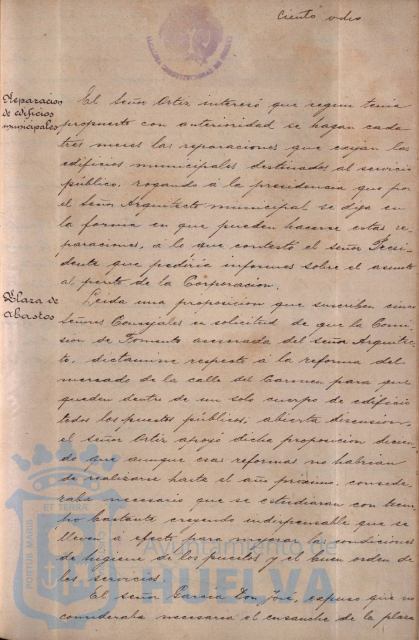 Ciento ocho
Reparacion
de edificios
municipales
El Señor Ortiz interesó que segun tenia
propuesto con anterioridad se hagan cada
tres meses las reparaciones que exijan los
edificios municipales destinados al servicio
público, rogando á la presidencia que por
el Señor Arquitecto municipal se diga en
la forma en que pueden hacerse estas re-
paraciones, á lo que contestó el señor Presi-
dente que pediria informes sobre el asunto
al perito de la Corporacion.
Plaza de
Abastos
Leida una proposicion que suscriben cinco
Señores Concejales en solicitud de que la Comi-
sion de Fomento asesorada del señor Arquitec-
to, dictamine respecto á la reforma del
mercado de la calle del Carmen para que
queden dentro de un solo cuerpo de edificio
todos los puestos públicos; abierta discusion,
el señor Ortiz apoyó dicha proposicion dicien-
do que aunque esas reformas no habrian
de realizarse hasta el año próximo, conside-
raba necesario que se estudiaran con tiem-
po bastante creyendo indispensable que se
lleven á efecto para mejorar las condiciones
de higiene de los puestos y el buen orden de
los servicios.
El Señor Garcia Don José, expuso que no
consideraba necesario el ensanche de la plaza
PORTUS MARIS ET TERRAE
Ayuntamiento de
HUELVA